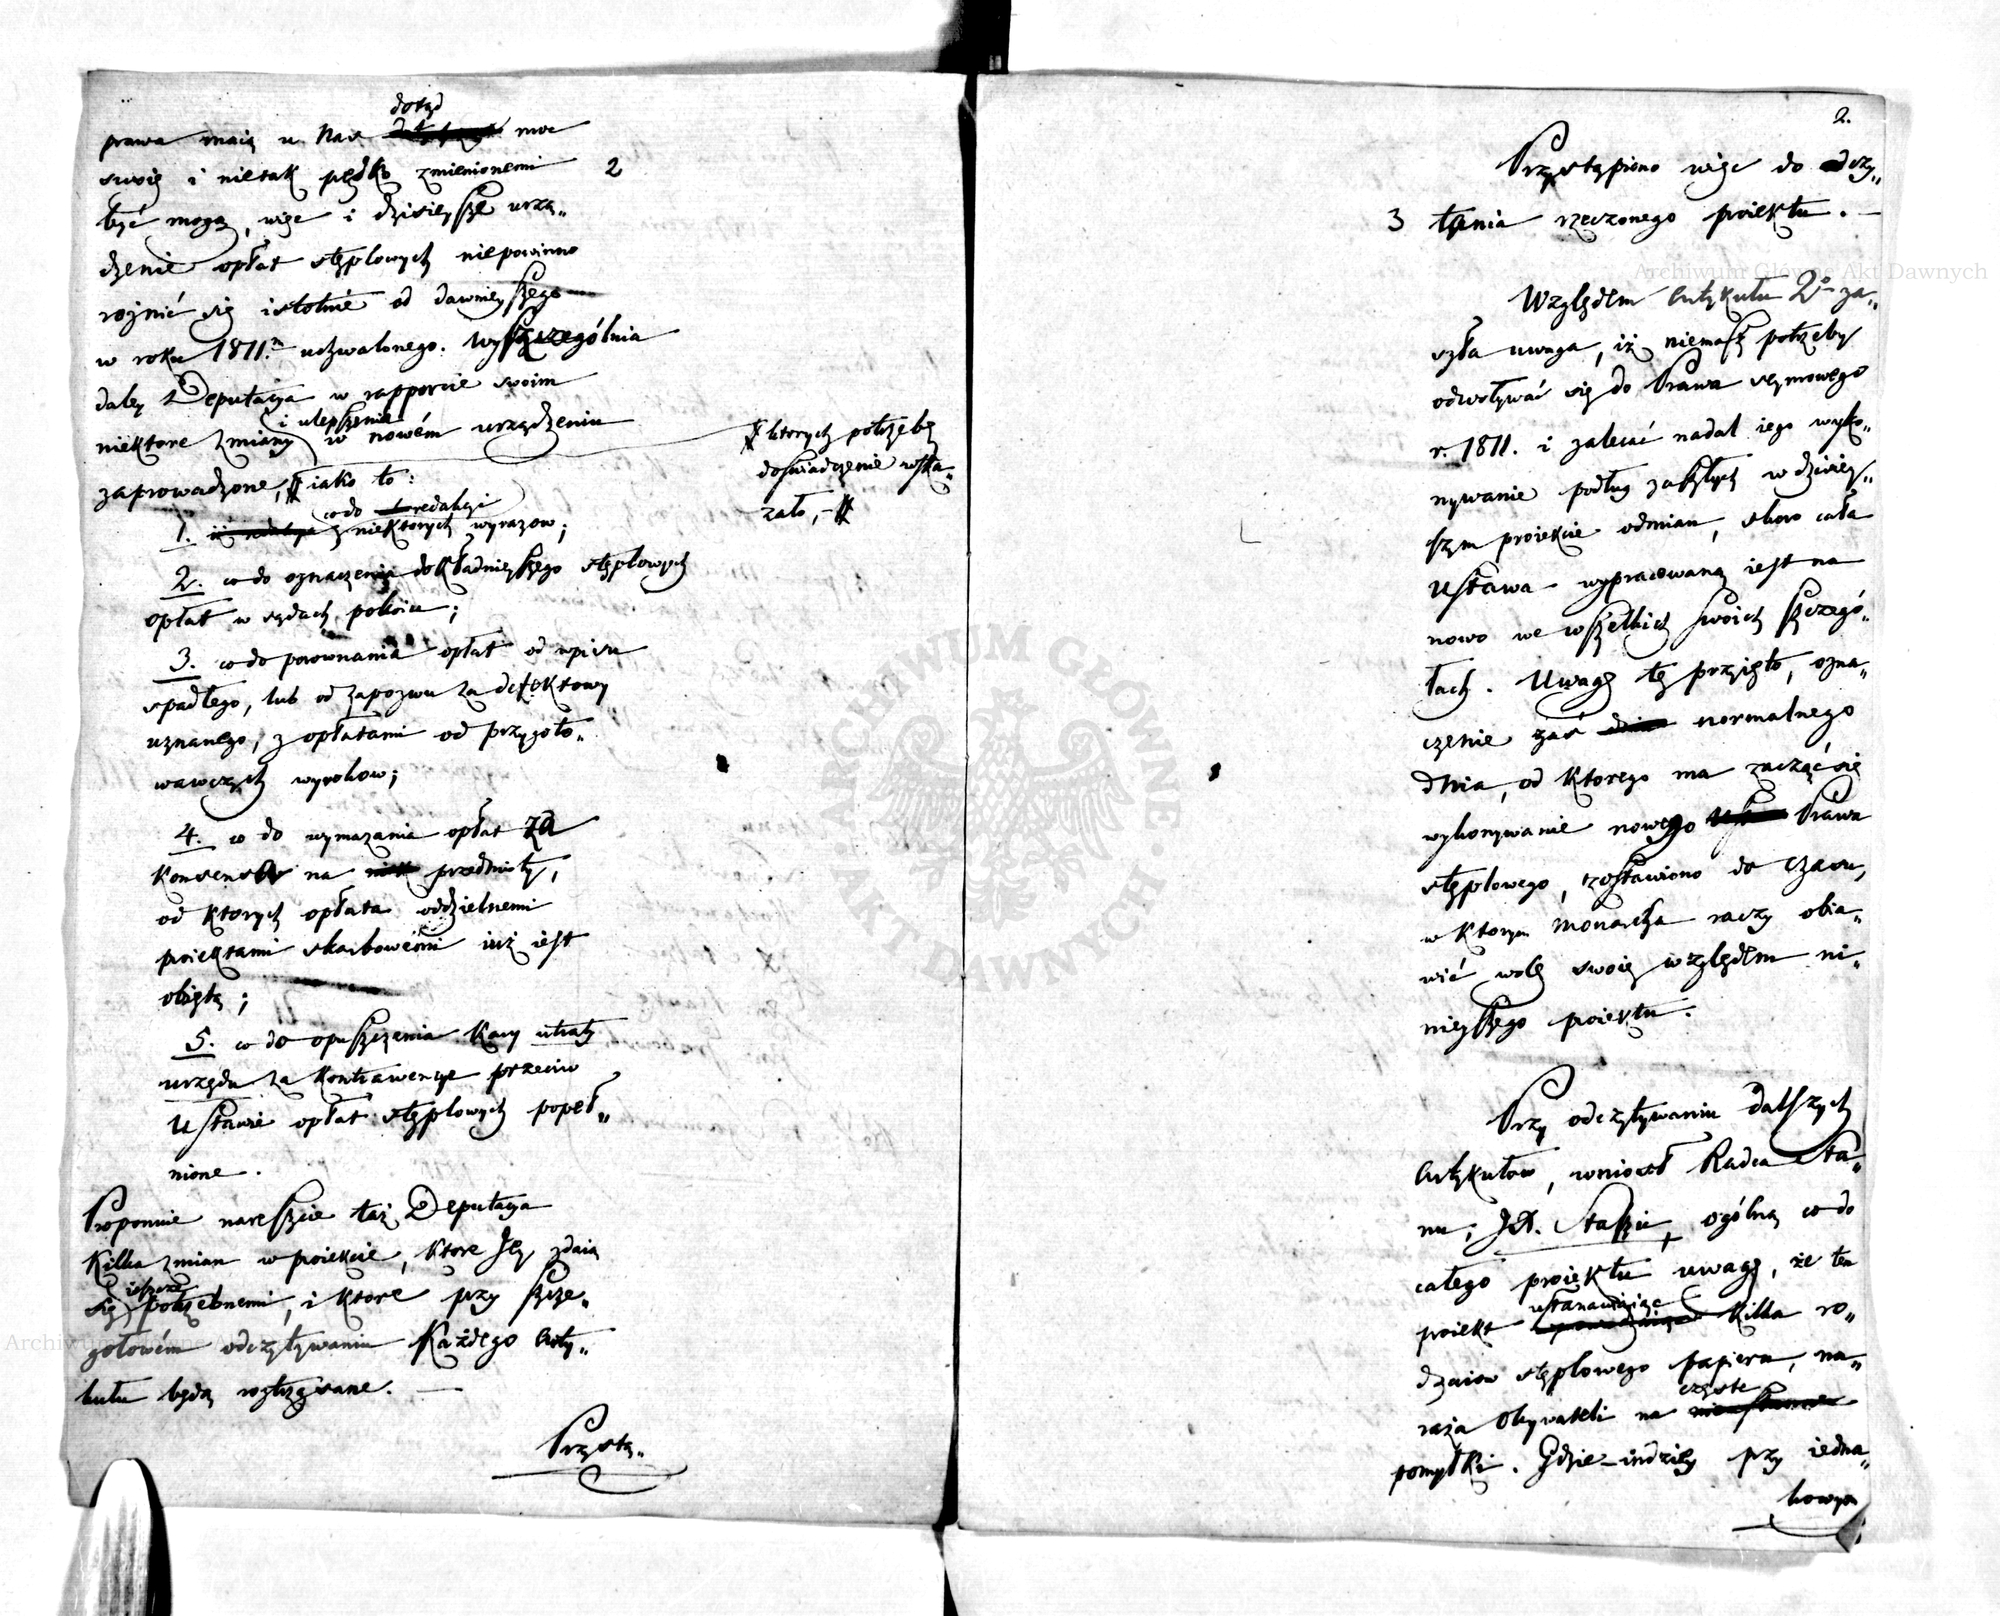 dotąd
prawa maią u Nas moc
swoię i nietak prędko zmienionemi
2
być mogą, więc i dzisieysze urzą„
dzenie opłat stęplowych niepowinno
rożnić się istotnie od dawnieyszego
w roku 1811.m uchwalonego. Wyszczególnia
daley Deputacya w rapporcie swoim
i ulepszenia
niektore zmiany w nowém urządzeniu
zaprowadzone, # iako to:
# ktorych potrzebę
doświadczenie wska„
zało, – #
co do redakcyi
1. niektorych wyrazow;
2. co do oznaczenia dokładnieyszego stęplowych
opłat w sądach pokoiu;
3. co do porownania opłat od wpisu
spadłego, lub od zapozwu za defektowy
uznanego, z opłatami od przygoto„
wawczych wyrokow;
4. co do wymazania opłat za
Konsensa na przedmioty,
od ktorych opłata oddzielnemi
proiektami skarbowemi iuż iest
obiętą;
5. co do opuszczenia Kary utraty
urzędu za Kontrawencye przeciw
Ustawie opłat stęplowych popeł„
nione.
Proponuie nareszcie taż Deputacya
Kilka zmian w proiekcie, ktore Jey zdaią
ieszcze
się potrzebnemi, i ktore przy szcze„
gołowém odczytywaniu Każdego Arty„
kułu będą roztrząsane. —
Przystą„
2.
Przystąpiono więc do odczy„
3
tania rzeczonego proiektu. —
Względem Artykułu 2o za„
szła uwaga, iż niemasz potrzeby
odwoływać się do Prawa seymowego
r. 1811. i zalecać nadal iego wyko„
nywanie podług zaszłych w dzisiey„
szym proiekcie odmian, skoro cała
Ustawa wypracowaną iest na
nowo we wszelkich swoich szczegó„
łach. Uwagę tę przyięto, ozna„
czenie zaś normalnego
dnia, od ktorego ma zacząć się
wykonywanie nowego Prawa
stęplowego, zostawiono do czasu,
w ktorym Monarcha raczy obia„
wić wolę swoię względem ni„
nieyszego proiektu.
Przy odczytywaniu dalszych
Artykułow, wniosł Radca Sta„
nu, JX. Staszic, ogólną co do
całego proiektu uwagę, że ten
ustanawiaiąc
proiekt Kilka ro„
dzaiow stęplowego papieru, na„
częste
raża Obywateli na
pomyłki. Gdzie-indziey przy iedna„
kowym